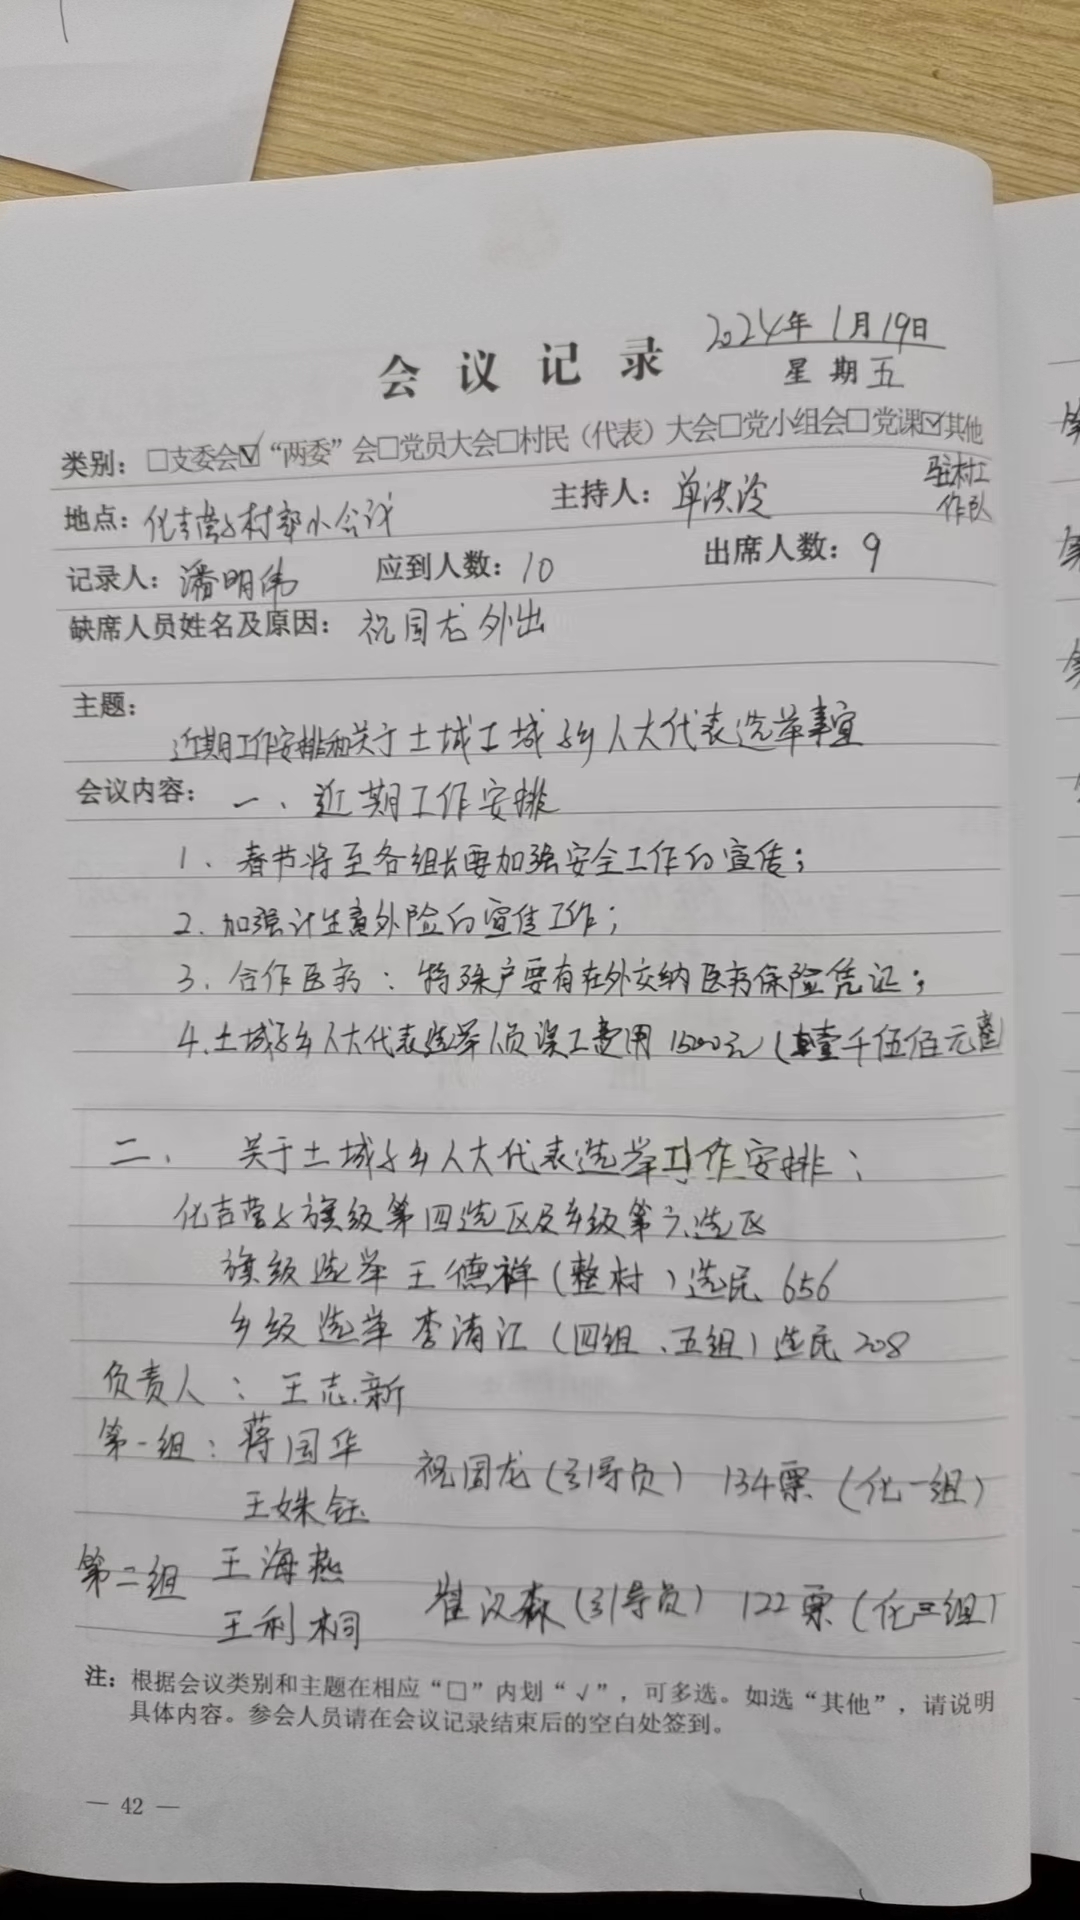 2024年1月19日
会议记录
星期五
类别：□支委会☑“两委”会□党员大会□村民（代表）大会□党小组会□党课☑其他
驻村工
作队
地点：化吉营子村部小会议
主持人：单洪
记录人：潘明伟 应到人数：10 出席人数：9
缺席人员姓名及原因：祝国龙外出
主题：
近期工作安排和关于土城土城子乡人大代表选举事宜
会议内容：一、近期工作安排
1、春节将至各组长要加强安全工作的宣传；
2、加强计生意外险的宣传工作；
3、合作医疗：特殊户要有在外交纳医疗保险凭证；
4、土城子乡人大代表选举人员误工费用1500元（壹千伍佰元整
二、关于土城子乡人大代表选举工作安排：
化吉营子旗级第四选区及乡级第六选区
旗级选举王德祥（整村）选民656
乡级选举李清江（四组、五组）选民208
负责人：王志新
第一组：蒋国华
祝国龙（引导员）134票（化一组）
王姝钰
第二组 王海燕
崔汉森（引导员）122票（化三组）
王利桐
注：根据会议类别和主题在相应“□”内划“√”，可多选。如选“其他”，请说明
具体内容。参会人员请在会议记录结束后的空白处签到。
— 42 —